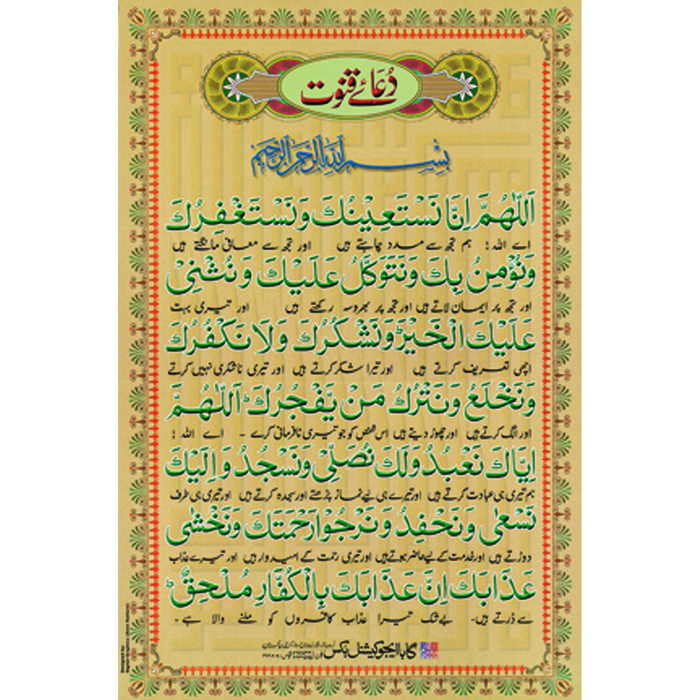 دُعَائے قنوت
بِسْمِ اللهِ الرَّحْمٰنِ الرَّحِيْمِ
اَللّٰهُمَّ اِنَّا نَسْتَعِيْنُكَ وَنَسْتَغْفِرُكَ
اے اللہ! ہم تجھ سے مدد چاہتے ہیں اور تجھ سے معافی مانگتے ہیں
وَنُؤْمِنُ بِكَ وَنَتَوَكَّلُ عَلَيْكَ وَنُثْنِىْ
اور تجھ پر ایمان لاتے ہیں اور تجھ پر بھروسہ رکھتے ہیں اور تیری بہت
عَلَيْكَ الْخَيْرَ وَنَشْكُرُكَ وَلَا نَكْفُرُكَ
اچھی تعریف کرتے ہیں اور تیرا شکر کرتے ہیں اور تیری ناشکری نہیں کرتے
وَنَخْلَعُ وَنَتْرُكُ مَنْ يَّفْجُرُكَ ؕ اَللّٰهُمَّ
اور الگ کرتے ہیں اور چھوڑ دیتے ہیں اس شخص کو جو تیری نافرمانی کرے ۔ اے اللہ !
اِيَّاكَ نَعْبُدُ وَلَكَ نُصَلِّىْ وَنَسْجُدُ وَاِلَيْكَ
ہم تیری ہی عبادت کرتے ہیں اور تیرے ہی لیے نماز پڑھتے اور سجدہ کرتے ہیں اور تیری ہی طرف
نَسْعٰى وَنَحْفِدُ وَنَرْجُوْا رَحْمَتَكَ وَنَخْشٰى
دوڑتے ہیں اور خدمت کے لیے حاضر ہوتے ہیں اور تیری رحمت کے امیدوار ہیں اور تیرے عذاب
عَذَابَكَ اِنَّ عَذَابَكَ بِالْكُفَّارِ مُلْحِقٌ ؕ
سے ڈرتے ہیں۔ بے شک تیرا عذاب کافروں کو ملنے والا ہے ۔
کابا ایجوکیشنل بکس